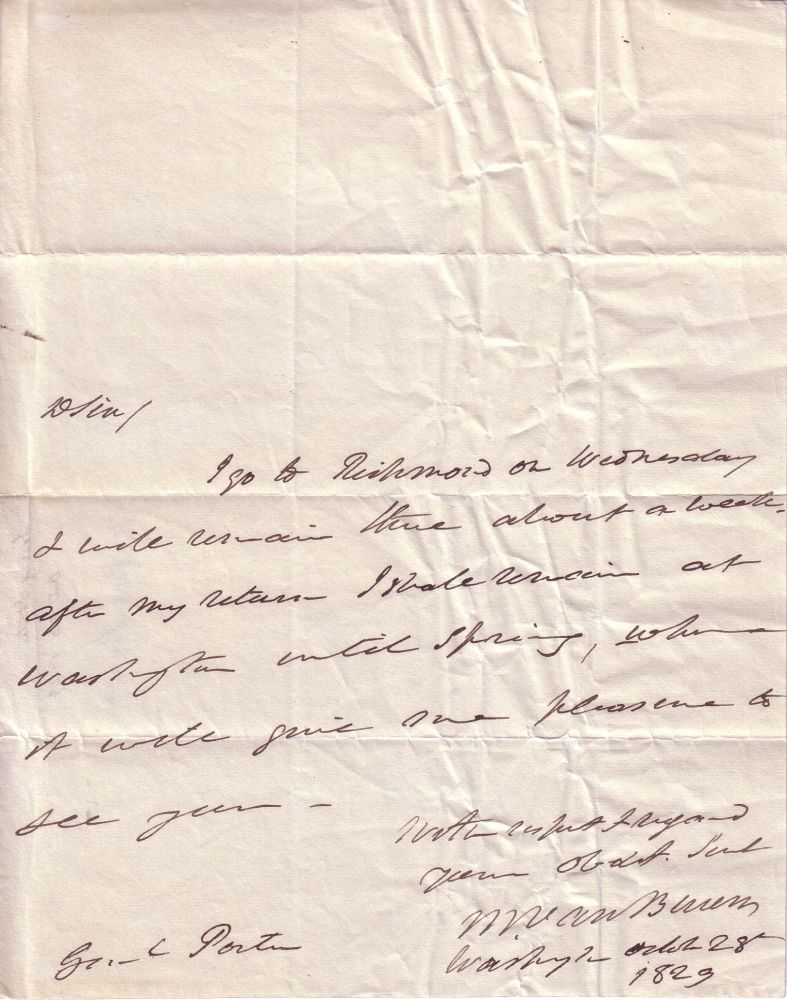 D Sir/
I go to Richmond on Wednesday
& will remain there about a week.
after my return I shall remain at
Washington until Spring, where
it will give me pleasure to
see you –
With respect & regard
your obedt. Servt
M Van Buren
Washington Octob 28th
1829
Genl Porter